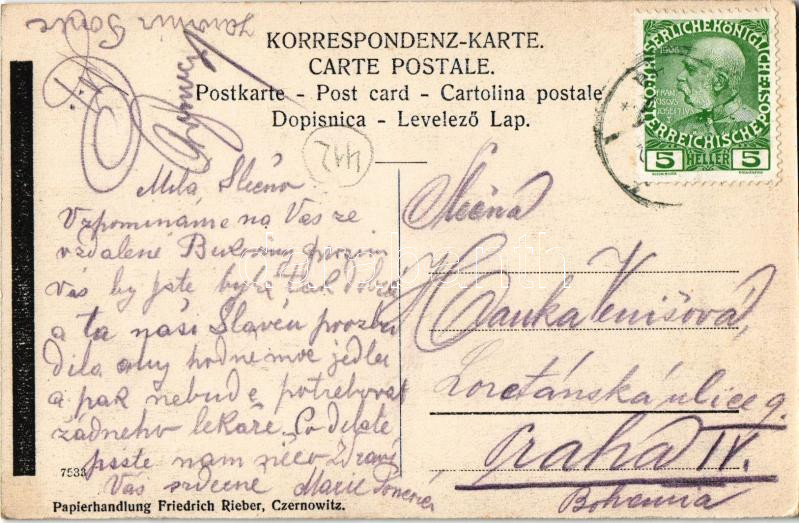 KORRESPONDENZ-KARTE.
CARTE POSTALE.
Postkarte - Post card - Cartolina postale
Dopisnica - Levelező Lap.
442
1908
KAISERLICHE KÖNIGLICHE
ÖSTERREICHISCHE POST
5 HELLER 5
Milá Slečno
Vzpomínáme na Vás ze
vzdálené Bukoviny prosím
vás by jste byla tak dobrá
a ta naší
aby hodně jedla
a pak nebude potřebovat
žádného lékaře. Co děláte
pište nám něco Zdraví
Vás srdečně Marie
Slečna
Hanka Venišová,
Loretánská ulice 9.
Praha IV.
Bohemia
7533
Papierhandlung Friedrich Rieber, Czernowitz.